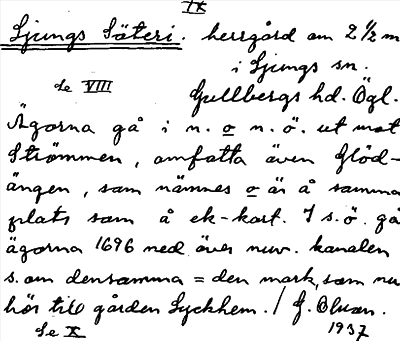 IX
Ljungs Säteri. herrgård om 2 1/2 m
i Ljungs sn.
Se VIII
Gullbergs hd. Ögl.
Ägorna gå i n. o n. ö. ut mot
Strömmen, omfatta även Glöd-
ängen, som nämnes o är å samma
plats som å ek-kart. I s. ö. gå
ägorna 1696 ned över nuv. kanalen
s. om densamma = den mark, som nu
hör till gården Lyckhem. /
1937
Se X